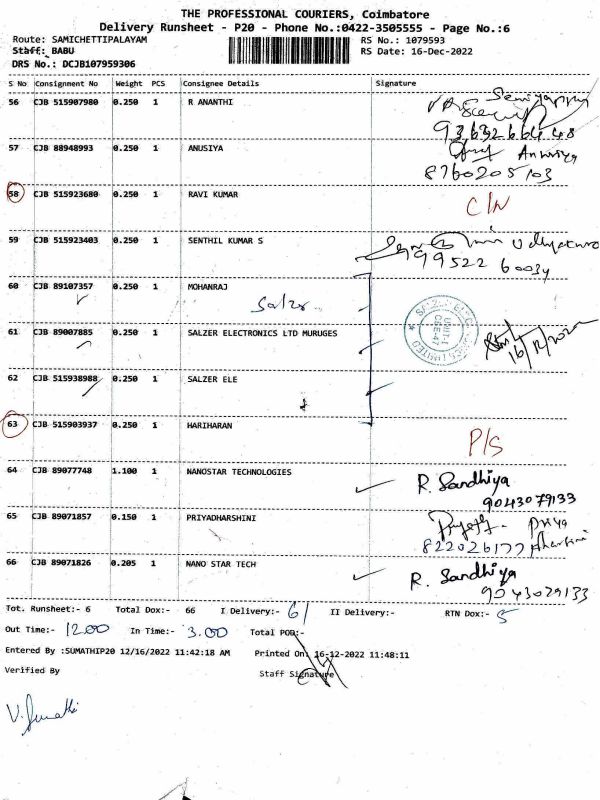 THE PROFESSIONAL COURIERS, Coimbatore
Delivery Runsheet - P20 - Phone No.:0422-3505555 - Page No.:6
Route: SAMICHETTIPALAYAM RS No.: 1079593
Staff: BABU RS Date: 16-Dec-2022
DRS No.: DCJB107959306
S No Consignment No Weight PCS Consignee Details Signature
56 CJB 515907980 0.250 1 R ANANTHI
57 CJB 88948993 0.250 1 ANUSIYA Anusiya
8760205103
58 CJB 515923680 0.250 1 RAVI KUMAR C/N
59 CJB 515923403 0.250 1 SENTHIL KUMAR S
99522 60034
60 CJB 89107357 0.250 1 MOHANRAJ
Salzer
61 CJB 89007885 0.250 1 SALZER ELECTRONICS LTD MURUGES
16/12/2022
62 CJB 515938988 0.250 1 SALZER ELE
63 CJB 515903937 0.250 1 HARIHARAN P/S
64 CJB 89077748 1.100 1 NANOSTAR TECHNOLOGIES R. Sandhiya
9043079133
65 CJB 89071857 0.150 1 PRIYADHARSHINI
822026177
66 CJB 89071826 0.205 1 NANO STAR TECH R. Sandhiya
9043079133
Tot. Runsheet:- 6 Total Dox:- 66 I Delivery:- 61 II Delivery:- RTN Dox:- 5
Out Time:- 12.00 In Time:- 3.00 Total POD:-
Entered By :SUMATHIP20 12/16/2022 11:42:18 AM Printed On: 16-12-2022 11:48:11
Verified By Staff Signature
V. Sumathi